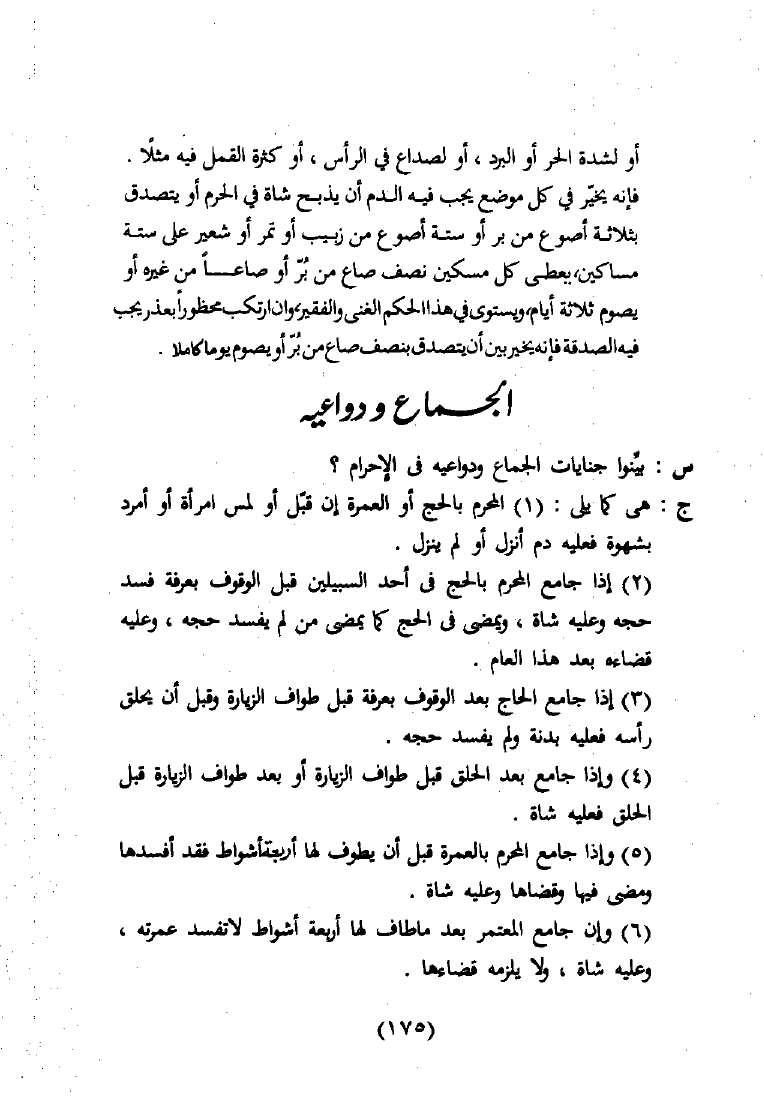 أو لشدة الحر أو البرد ، أو لصداع في الرأس ، أو كثرة القمل فيه مثلًا .
فإنه يخيّر في كل موضع يجب فيه الدم أن يذبح شاة في الحرم أو يتصدق
بثلاثة أصوع من بر أو ستة أصوع من زبيب أو تمر أو شعير على ستة
مساكين، يعطى كل مسكين نصف صاع من بُرّ أو صاعاً من غيره أو
يصوم ثلاثة أيام، ويستوى في هذا الحكم الغنى والفقير، وان ارتكب محظوراً بعذر يجب
فيه الصدقة فإنه يخير بين أن يتصدق بنصف صاع من بُرّ أو يصوم يوما كاملا .
الجماع ودواعيه
س : بيِّنوا جنايات الجماع ودواعيه فى الإحرام ؟
ج : هى كما يلى : (١) المحرم بالحج أو العمرة إن قبّل أو لمس امرأة أو أمرد
بشهوة فعليه دم أنزل أو لم ينزل .
(٢) إذا جامع المحرم بالحج فى أحد السبيلين قبل الوقوف بعرفة فسد
حجه وعليه شاة ، ويمضى فى الحج كما يمضى من لم يفسد حجه ، وعليه
قضاءه بعد هذا العام .
(٣) إذا جامع الحاج بعد الوقوف بعرفة قبل طواف الزيارة وقبل أن يحلق
رأسه فعليه بدنة ولم يفسد حجه .
(٤) وإذا جامع بعد الحلق قبل طواف الزيارة أو بعد طواف الزيارة قبل
الحلق فعليه شاة .
(٥) وإذا جامع المحرم بالعمرة قبل أن يطوف لها أربعة أشواط فقد أفسدها
ومضى فيها وقضاها وعليه شاة .
(٦) وإن جامع المعتمر بعد ماطاف لها أربعة أشواط لاتفسد عمرته ،
وعليه شاة ، ولا يلزمه قضاءها .
(١٧٥)